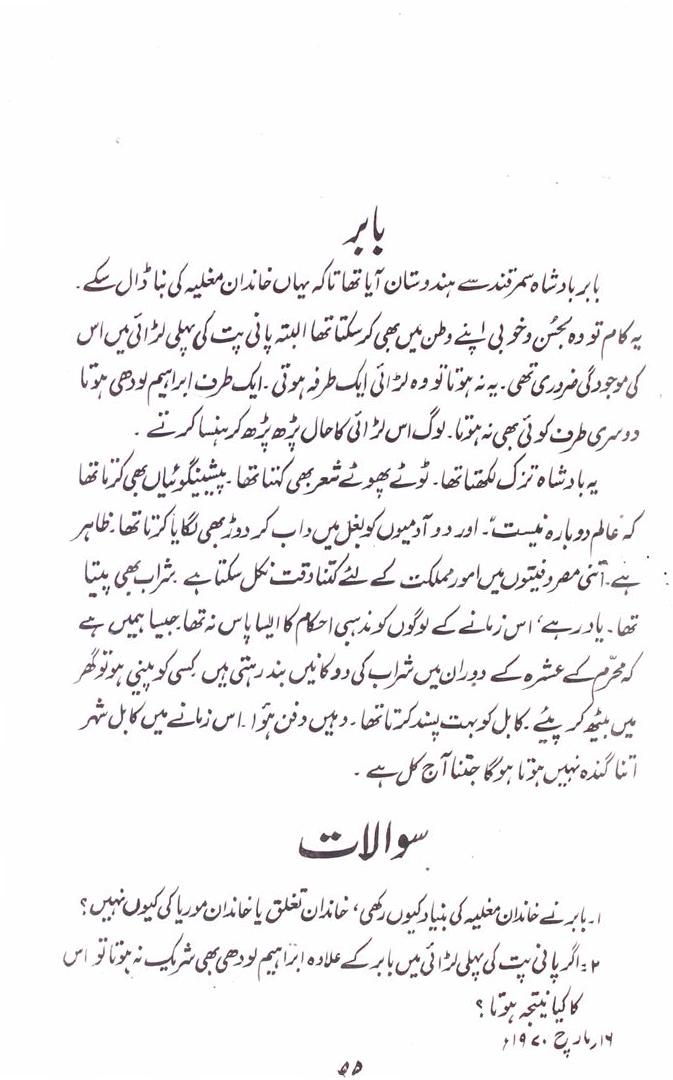 بابر
بابر بادشاہ سمرقند سے ہندوستان آیا تھا تاکہ یہاں خاندان مغلیہ کی بنا ڈال سکے۔
یہ کام تو وہ بحُسن و خوبی اپنے وطن میں بھی کر سکتا تھا البتہ پانی پت کی پہلی لڑائی میں اس
کی موجودگی ضروری تھی۔ یہ نہ ہوتا تو وہ لڑائی ایک طرفہ ہوتی۔ ایک طرف ابراہیم لودھی ہوتا
دوسری طرف کوئی بھی نہ ہوتا۔ لوگ اس لڑائی کا حال پڑھ پڑھ کر ہنسا کرتے ۔
یہ بادشاہ تزک لکھتا تھا۔ ٹوٹے پھوٹے شعر بھی کہتا تھا۔ پیشینگوئیاں بھی کرتا تھا
کہ "عالم دوبارہ نیست"۔ اور دو آدمیوں کو بغل میں داب کر دوڑ بھی لگایا کرتا تھا۔ ظاہر
ہے۔ اتنی مصروفیتوں میں امور مملکت کے لئے کتنا وقت نکل سکتا ہے۔ شراب بھی پیتا
تھا۔ یاد رہے، اس زمانے کے لوگوں کو مذہبی احکام کا ایسا پاس نہ تھا۔ جیسا ہمیں ہے
کہ محرّم کے عشرہ کے دوران میں شراب کی دوکانیں بند رہتی ہیں۔ کسی کو پینی ہو تو گھر
میں بیٹھ کر پیئے۔ کابل کو بہت پسند کرتا تھا۔ وہیں دفن ہؤا۔ اس زمانے میں کابل شہر
اتنا گندہ نہیں ہوتا ہوگا جتنا آج کل ہے ۔
سوالات
۱۔ بابر نے خاندان مغلیہ کی بنیاد کیوں رکھی، خاندان تغلق یا خاندان موریا کی کیوں نہیں؟
۲۔ اگر پانی پت کی پہلی لڑائی میں بابر کے علاوہ ابراہیم لودھی بھی شریک نہ ہوتا تو اس
کا کیا نتیجہ ہوتا ؟
۱۶ مارچ ۱۹۷۰ء
۵۵